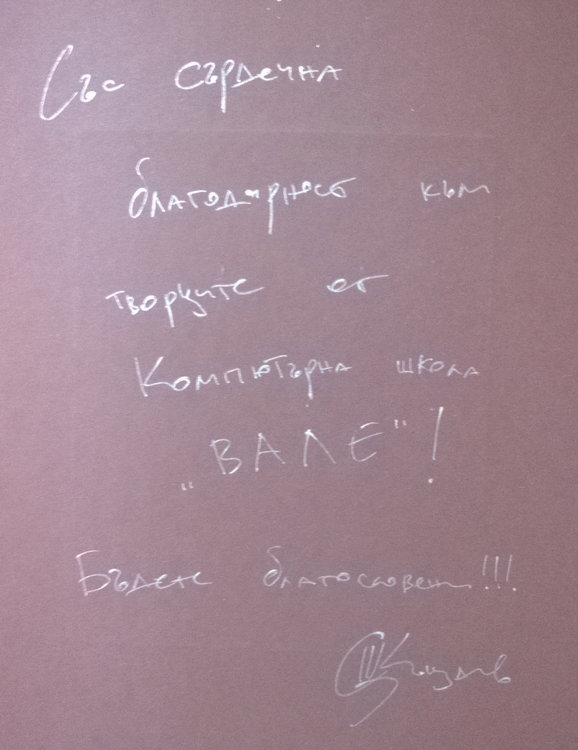 Със сърдечна
благодарност към
творците от
Компютърна школа
„ВАЛЕ"!
Бъдете благословени!!!